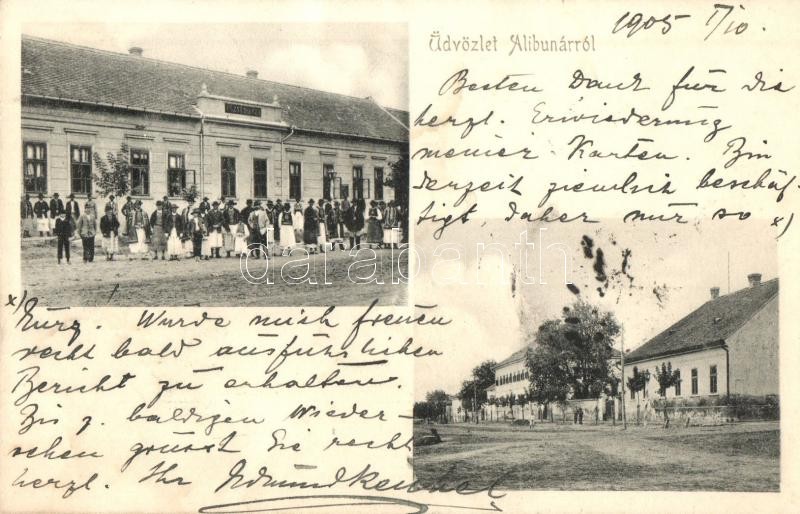 1905 I/10.
Üdvözlet Alibunárról
Besten Dank für die
herzl. Erwiederung
meiner Karten. Bin
derzeit ziemlich beschäf-
tigt, daher nur so x)
x) kurz. Würde mich freuen
recht bald ausführlichen
Bericht zu erhalten.
Bis z. baldigen Wieder-
sehen grüsst Sie recht
herzl. Ihr Edmund
darabanth